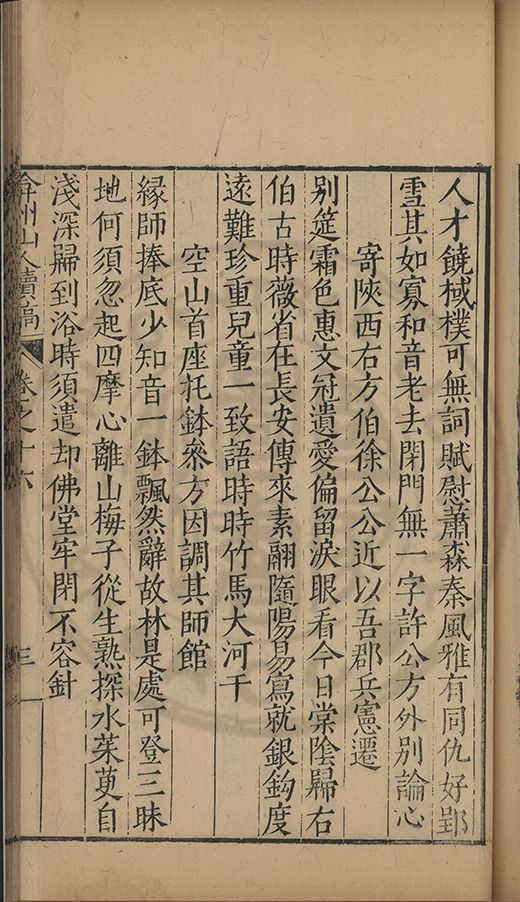 人才饒棫樸可無詞賦慰蕭森秦風雅有同仇好郢
雪其如寡和音老去閉門無一字許公方外別論心
寄陝西右方伯徐公公近以吾郡兵憲遷
別筵霜色惠文冠遺愛偏留淚眼看今日棠陰歸右
伯古時薇省在長安傳來素翮隨陽易寫就銀鈎度
遠難珍重兒童一致語時時竹馬大河干
空山首座托鉢叅方因調其師館
縁師捧底少知音一鉢飄然辭故林是處可登三昧
地何須忽起四摩心離山梅子從生熟探水茱萸自
淺深歸到浴時須遣却佛堂牢閉不容針
弇州山人續稿 卷之十六 三